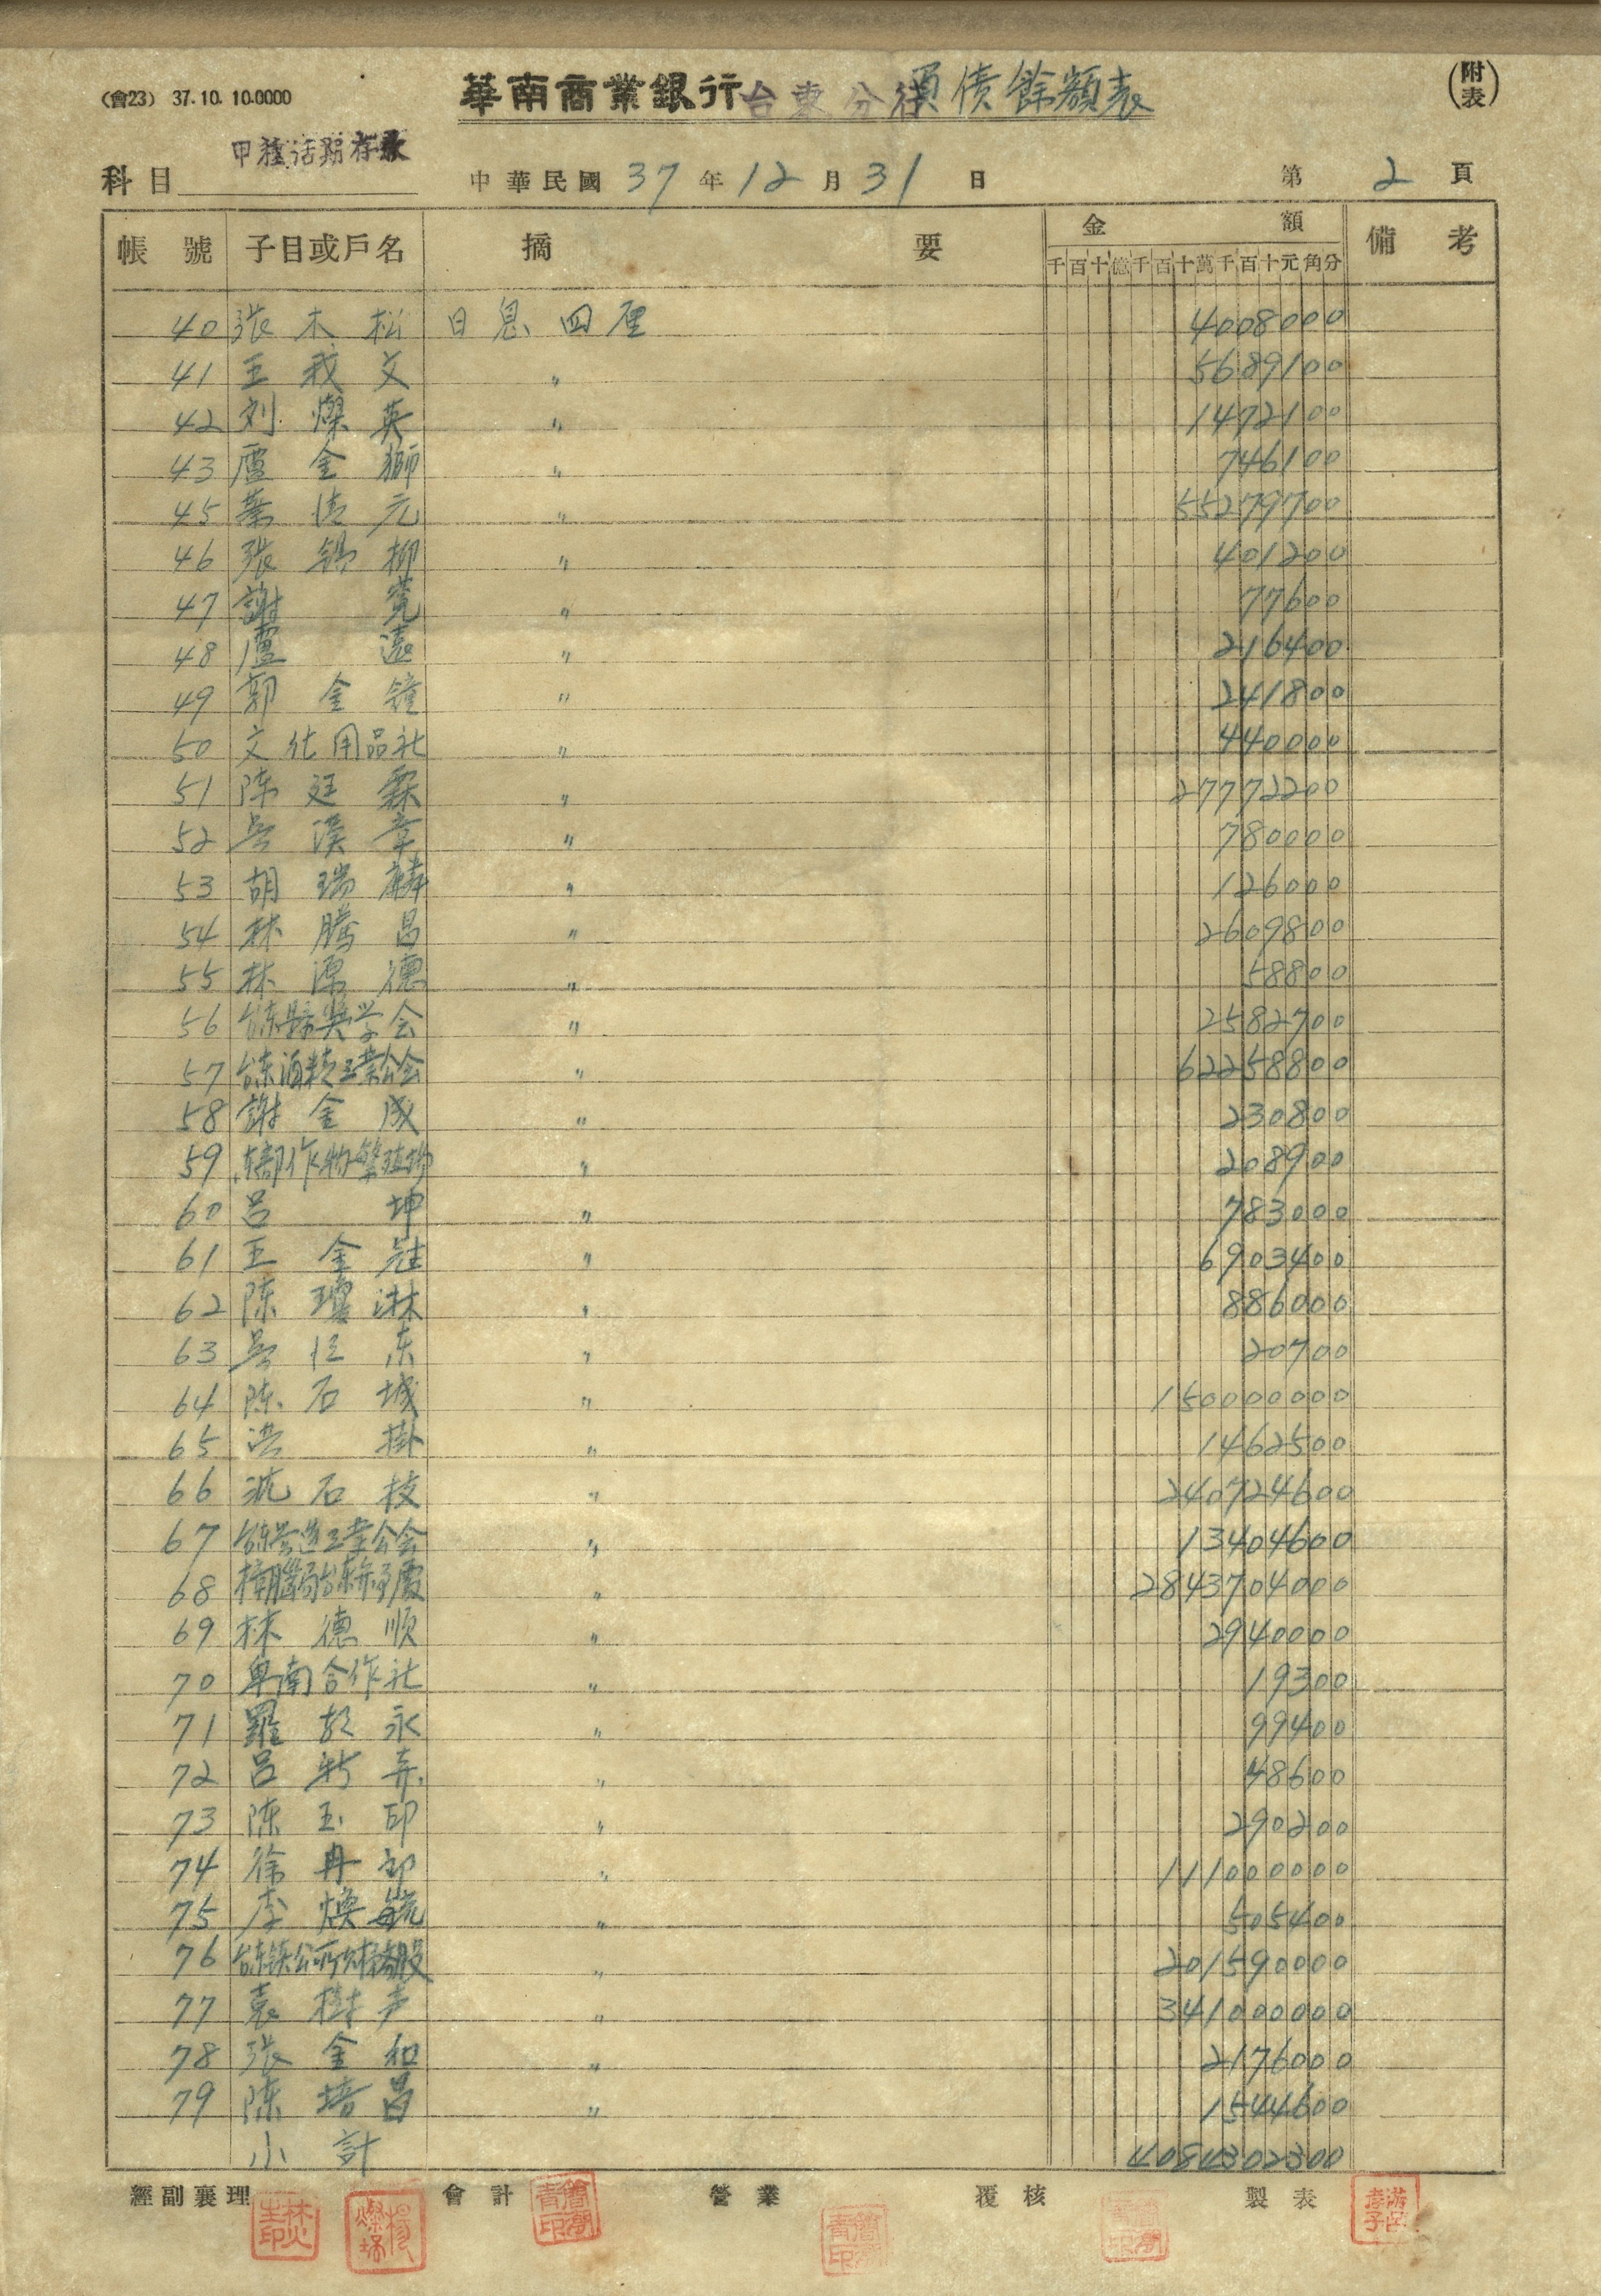 (會23) 37.10.10.0000
華南商業銀行台東分行負債餘額表
(附表)
科目 甲種活期存款
中華民國 37 年 12 月 31 日
第 2 頁
帳號 子目或戶名 摘要 金額 備考
千百十億千百十萬千百十元角分
40 張木松 日息四厘 4008000
41 王我文 〃 5689100
42 刘燦英 〃 1472100
43 盧金獅 〃 746100
45 葉清元 〃 55279700
46 張錦柳 〃 401200
47 謝寛 〃 77600
48 盧遠 〃 216400
49 郭金鐘 〃 241800
50 文化用品社 〃 440000
51 陈廷霖 〃 27772200
52 吳漢章 〃 780000
53 胡瑞麟 〃 126000
54 林騰昌 〃 2609800
55 林源德 〃 58800
56 台东縣奬学会 〃 2582700
57 台东酒精工業公会 〃 62258800
58 謝金成 〃 230800
59 东部作物繁殖場 〃 208900
60 呂坤 〃 783000
61 王金 〃 6903400
62 陈瓊淋 〃 886000
63 吳 东 〃 20700
64 陈石城 〃 150000000
65 洪掛 〃 1462500
66 沈石枝 〃 240724600
67 台东营造工業公会 〃 13404600
68 樟腦局台东 〃 2843704000
69 林德順 〃 2940000
70 卑南合作社 〃 19300
71 羅 永 〃 99400
72 呂新 〃 48600
73 陈玉印 〃 290200
74 徐丹郎 〃 111000000
75 李煥毓 〃 505400
76 台东鎮公所财務股 〃 201590000
77 袁樹声 〃 341000000
78 張金和 〃 2176000
79 陈培昌 〃 1544600
小計 4084302300
經副襄理 會計 營業 覆核 製表